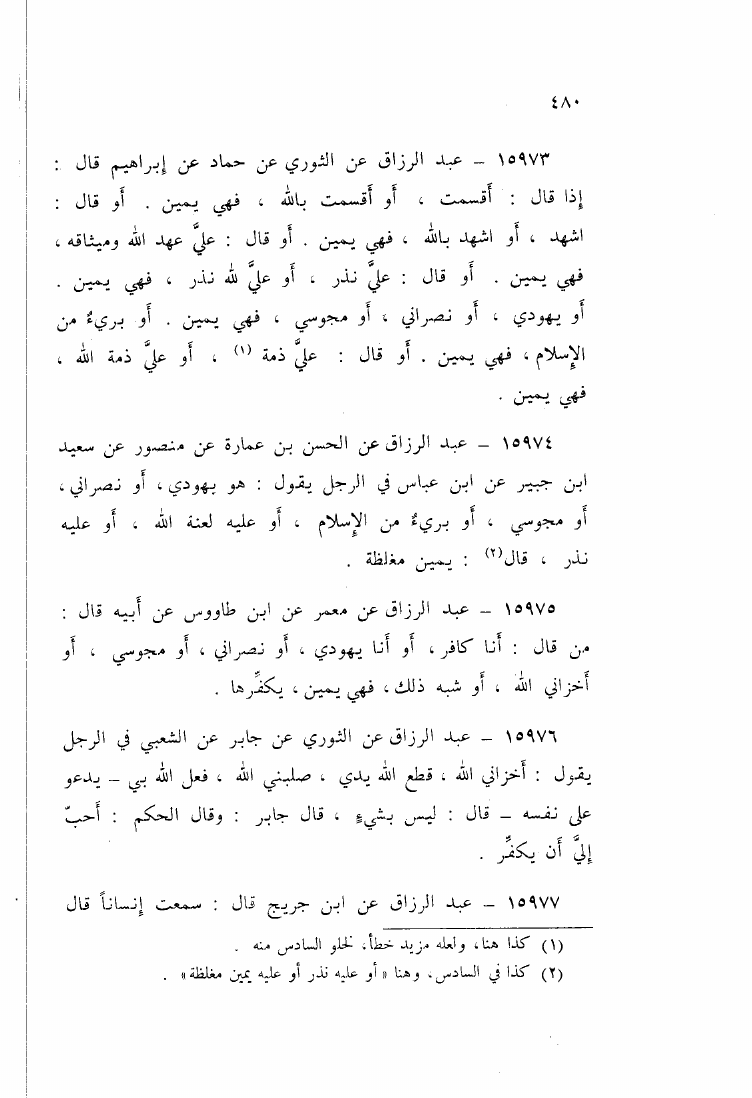 ٤٨٠
١٥٩٧٣ – عبد الرزاق عن الثوري عن حماد عن إبراهيم قال :
إذا قال : أقسمت ، أو أقسمت بالله ، فهي يمين . أو قال :
اشهد ، أو اشهد بالله ، فهي يمين . أو قال : عليَّ عهد الله وميثاقه ،
فهي يمين . أو قال : عليَّ نذر ، أو عليَّ لله نذر ، فهي يمين .
أو يهودي ، أو نصراني ، أو مجوسي ، فهي يمين . أو بريءٌ من
الإسلام ، فهي يمين . أو قال : عليَّ ذمة (١) ، أو عليَّ ذمة الله ،
فهي يمين .
١٥٩٧٤ – عبد الرزاق عن الحسن بن عمارة عن منصور عن سعيد
ابن جبير عن ابن عباس في الرجل يقول : هو يهودي ، أو نصراني ،
أو مجوسي ، أو بريءٌ من الإسلام ، أو عليه لعنة الله ، أو عليه
نذر ، قال(٢) : يمين مغلظة .
١٥٩٧٥ – عبد الرزاق عن معمر عن ابن طاووس عن أبيه قال :
من قال : أنا كافر ، أو أنا يهودي ، أو نصراني ، أو مجوسي ، أو
أخزاني الله ، أو شبه ذلك ، فهي يمين ، يكفِّرها .
١٥٩٧٦ – عبد الرزاق عن الثوري عن جابر عن الشعبي في الرجل
يقول : أخزاني الله ، قطع الله يدي ، صلبني الله ، فعل الله بي – يدعو
على نفسه – قال : ليس بشيءٍ ، قال جابر : وقال الحكم : أحبّ
إليَّ أن يكفِّر .
١٥٩٧٧ – عبد الرزاق عن ابن جريج قال : سمعت إنساناً قال
(١) كذا هنا، ولعله مزيد خطأ، لخلو السادس منه .
(٢) كذا في السادس، وهنا « أو عليه نذر أو عليه يمين مغلظة » .